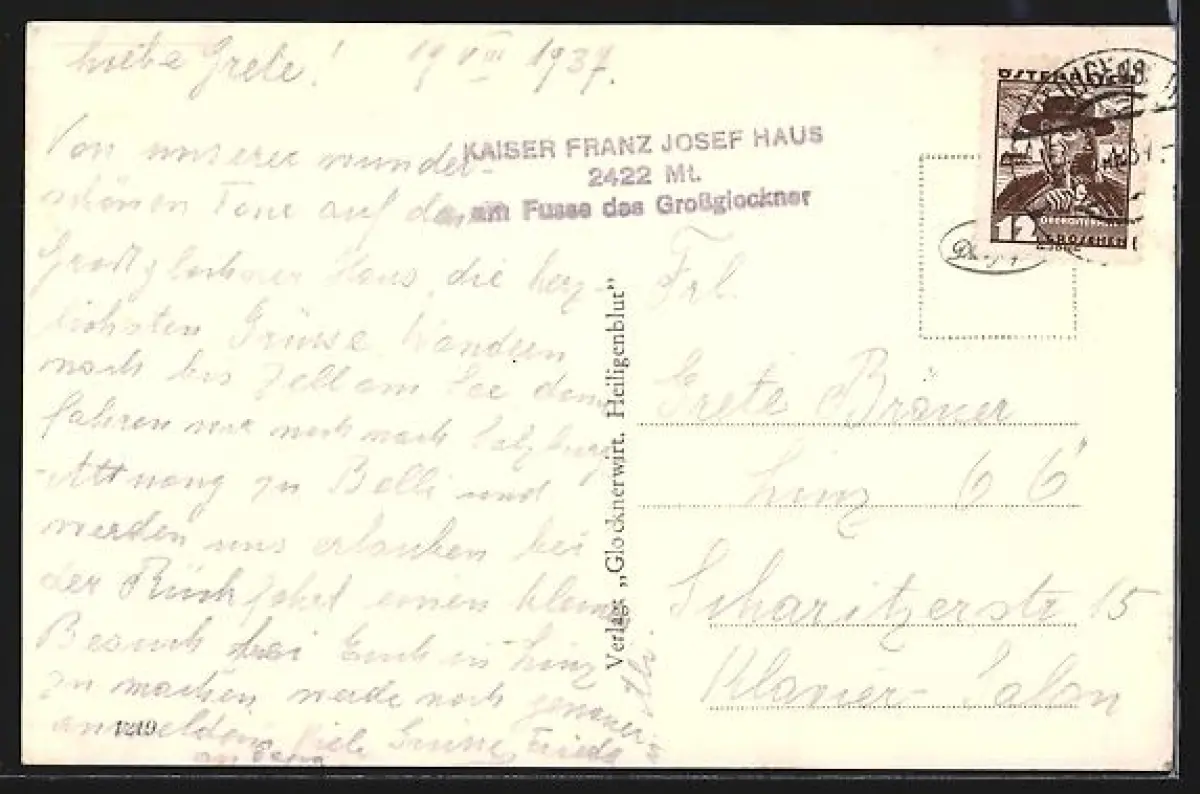 Liebe Grete! 19 VIII 1937.
Von unserer wunder-
schönen Tour auf dem
Großglockner Haus, die herz-
lichsten Grüsse. Wandern
noch bis Zell am See dann
fahren wir noch nach Salzburg
-Attnang zu Belli und
werden uns erlauben bei
der Rückfahrt einen kleinen
Besuch bei Euch in Linz
zu machen, werde noch genauer
anmelden. Viele Grüsse, Frieda
1219
KAISER FRANZ JOSEF HAUS
2422 Mt.
am Fusse des Großglockner
Verlag: „Glocknerwirt, Heiligenblut"
ÖSTERREICH
12
OBERÖSTERREICH
GROSCHEN
Frl.
Grete Brauer
Linz
Scharitzerstr 15
Klavier-Salon